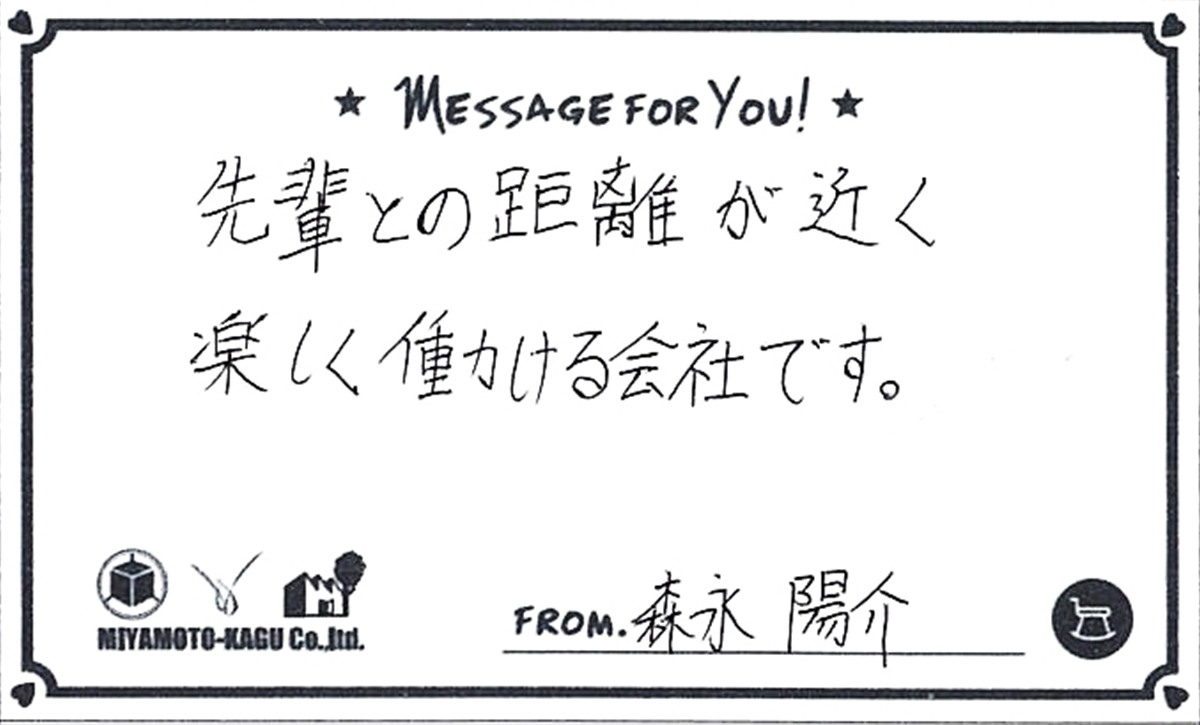 ★ MESSAGE FOR YOU! ★
先輩との距離が近く
楽しく働かける会社です。
MIYAMOTO-KAGU Co.,ltd.
FROM. 森永 陽介